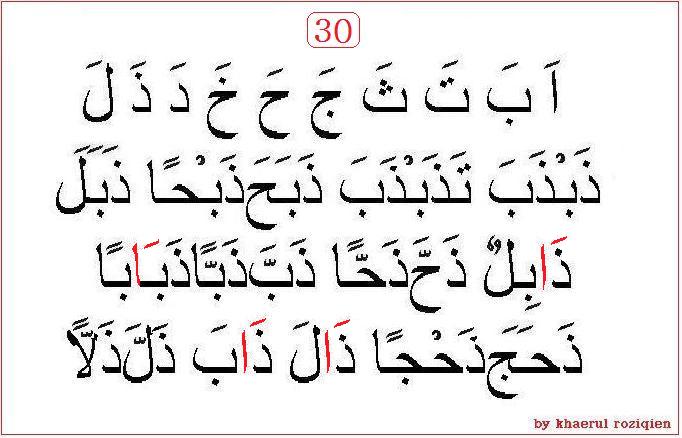 30
اَ بَ تَ ثَ جَ حَ خَ دَ ذَ لَ
ذَبْذَبَ تَذَبْذَبَ ذَبَحَ ذَبْحًا ذَبَلَ
ذَابِلٌ ذَحَّ ذَحًّا ذَبَّ ذَبًّا ذَبَابًا
ذَحَجَ ذَحْجًا ذَالَ ذَابَ ذَلَّ ذَلًّا
by khaerul roziqien